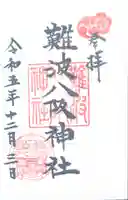 奉拝
難波八阪神社
令和五年十二月三日